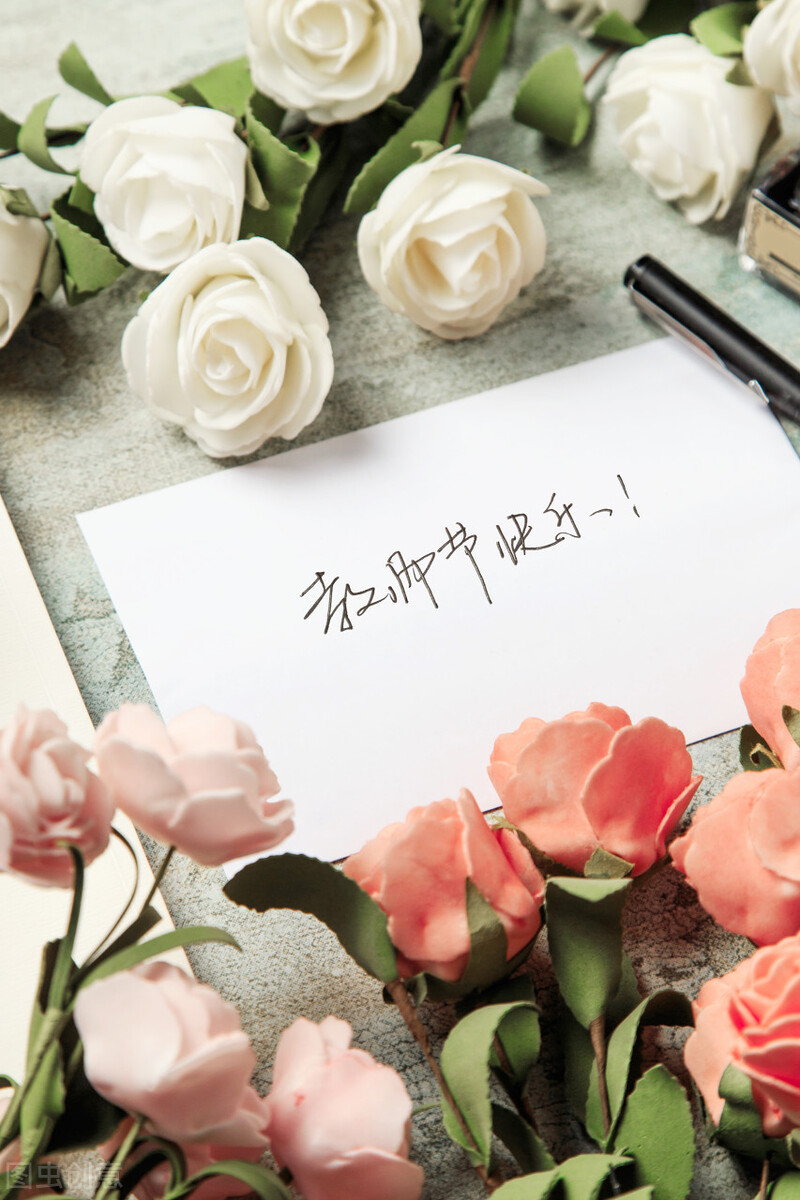 教师节快乐~!
图虫创意